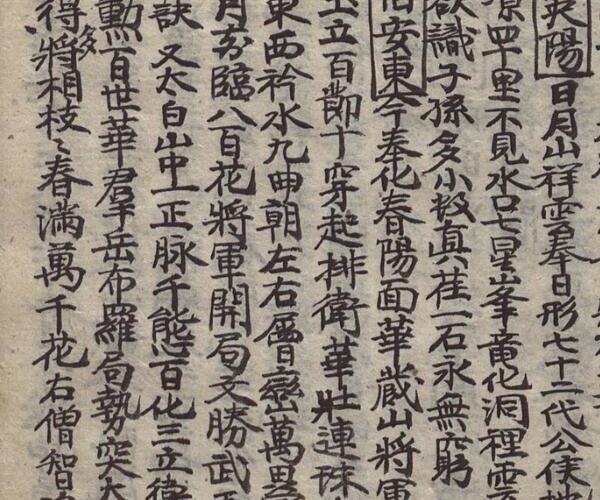 英陽 日月山祥雲奉日形七十二代公侯
原四十里不見水口七星峯竜化洞裡雲
欲識子孫多小数真荏一石永無窮
安東 今奉化春陽面華蔵山将軍
玉立百節十穿起排衛華壮連珠
東西衿水九曲朝左右層巒萬
月前臨八百花將軍開局文勝武
訣 又太白山中一正脉千態百化三立
勲百世華君子岳布羅局勢突大
得多將相枝〻春滿萬千花右僧智